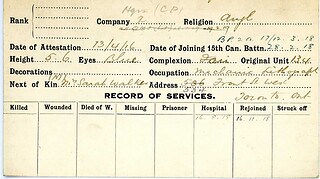 Hqrs (C.P.)
Rank Company 2 Religion Angl
B.P.= 17/12. 3. 18
Date of Attestation 13/4/16 Date of Joining 15th Can. Battn. 28. 2. 18
Height 5. 6. Eyes Blue Complexion Fair Original Unit 134
Decorations Occupation
Next of Kin (M) Mrs Sarah Address Front St
Toronto. Ont.
RECORD OF SERVICES.
Killed Wounded Died of W. Missing Prisoner Hospital Rejoined Struck off
16. 11. 18